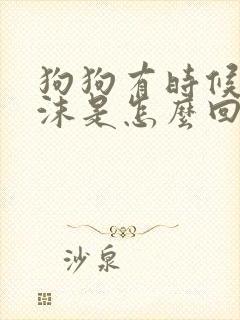 狗狗有時候
沫是怎麼回
沙泉